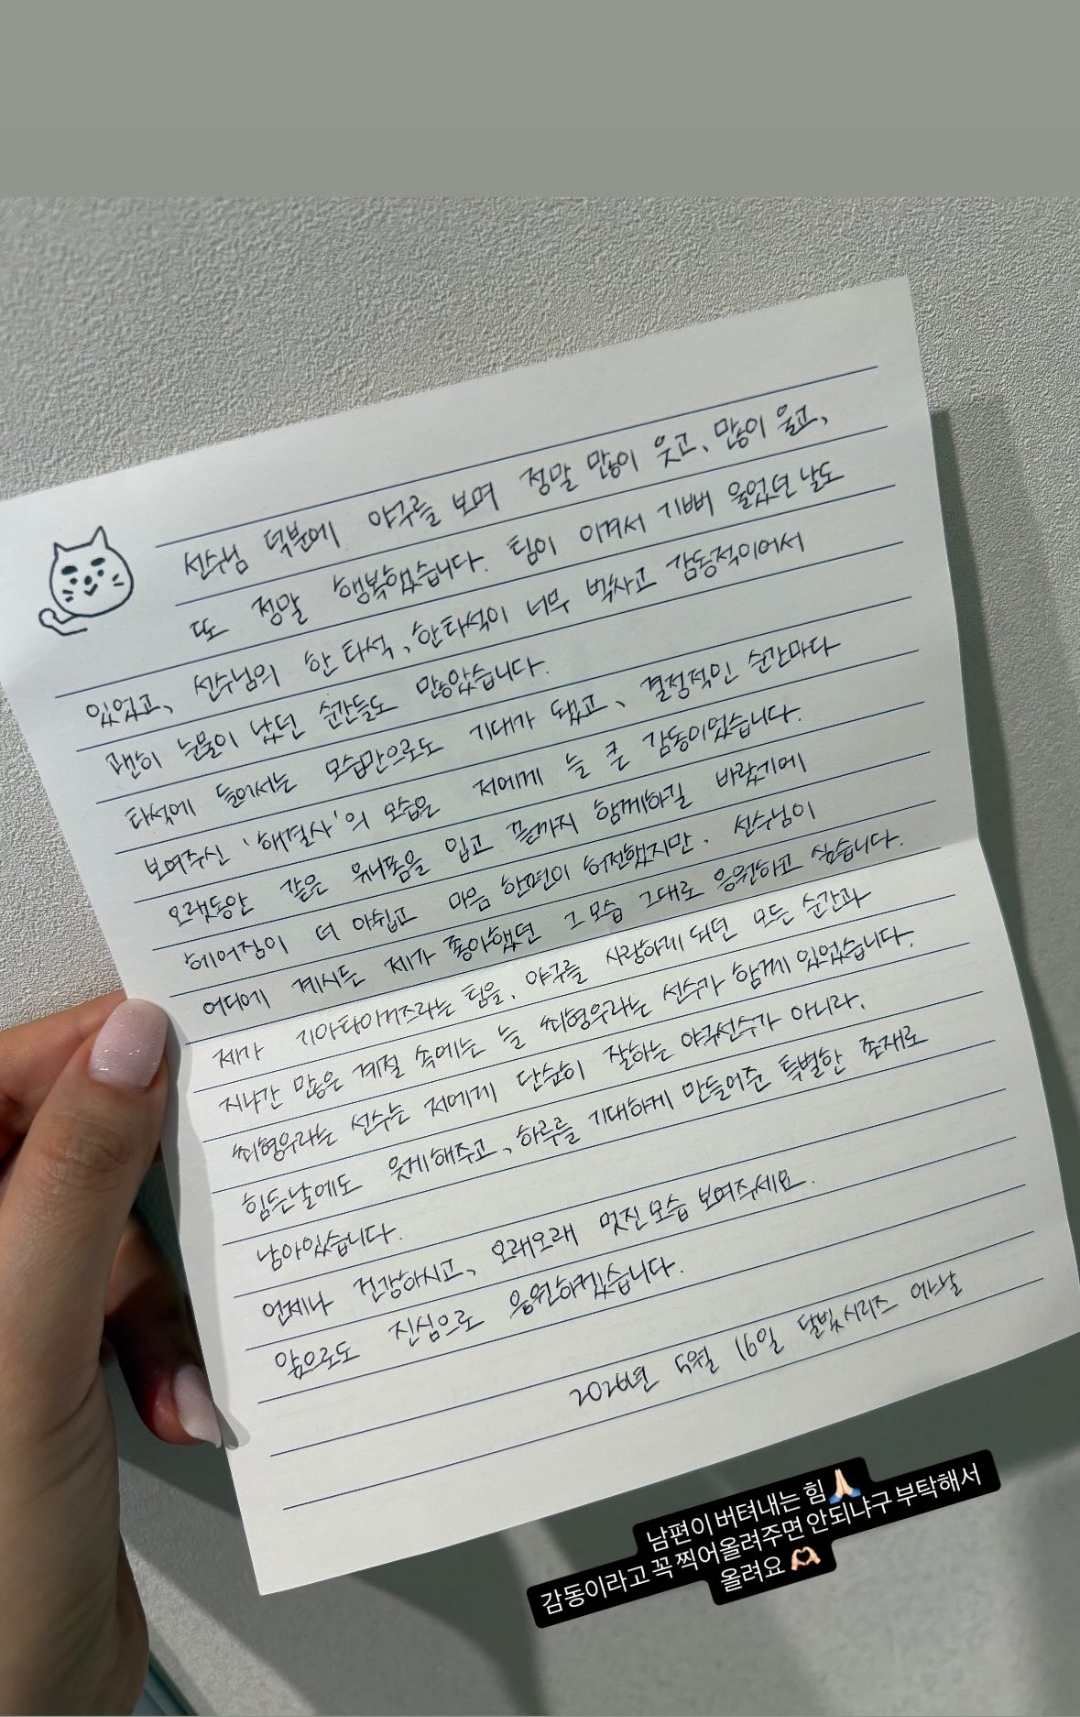 선수님 덕분에 야구를 보며 정말 많이 웃고, 많이 울고,
또 정말 행복했습니다. 팀이 이겨서 기뻐 울었던 날도
있었고, 선수님의 한 타석, 한타석이 너무 벅차고 감동적이어서
괜히 눈물이 났던 순간들도 많았습니다.
타석에 들어서는 모습만으로도 기대가 됐고, 결정적인 순간마다
보여주신 '해결사'의 모습은 저에게 늘 큰 감동이었습니다.
오랫동안 같은 유니폼을 입고 끝까지 함께하길 바랐기에
헤어짐이 더 아쉽고 마음 한편이 허전했지만. 선수님이
어디에 계시든 제가 좋아했던 그 모습 그대로 응원하고 싶습니다.
제가 기아타이거즈라는 팀을, 야구를 사랑하게 되던 모든 순간과
지나간 많은 계절 속에는 늘 최형우라는 선수가 함께 있었습니다.
최형우라는 선수는 저에게 단순히 잘하는 야구선수가 아니라,
힘든날에도 웃게해주고, 하루를 기대하게 만들어준 특별한 존재로
남아있습니다.
언제나 건강하시고, 오래오래 멋진모습 보여주세요.
앞으로도 진심으로 응원하겠습니다.
2026년 5월 16일 달빛시리즈 어느날
남편이 버텨내는 힘🙏🏻
감동이라고 꼭 찍어올려주면 안되냐구 부탁해서
올려요 🫶🏻